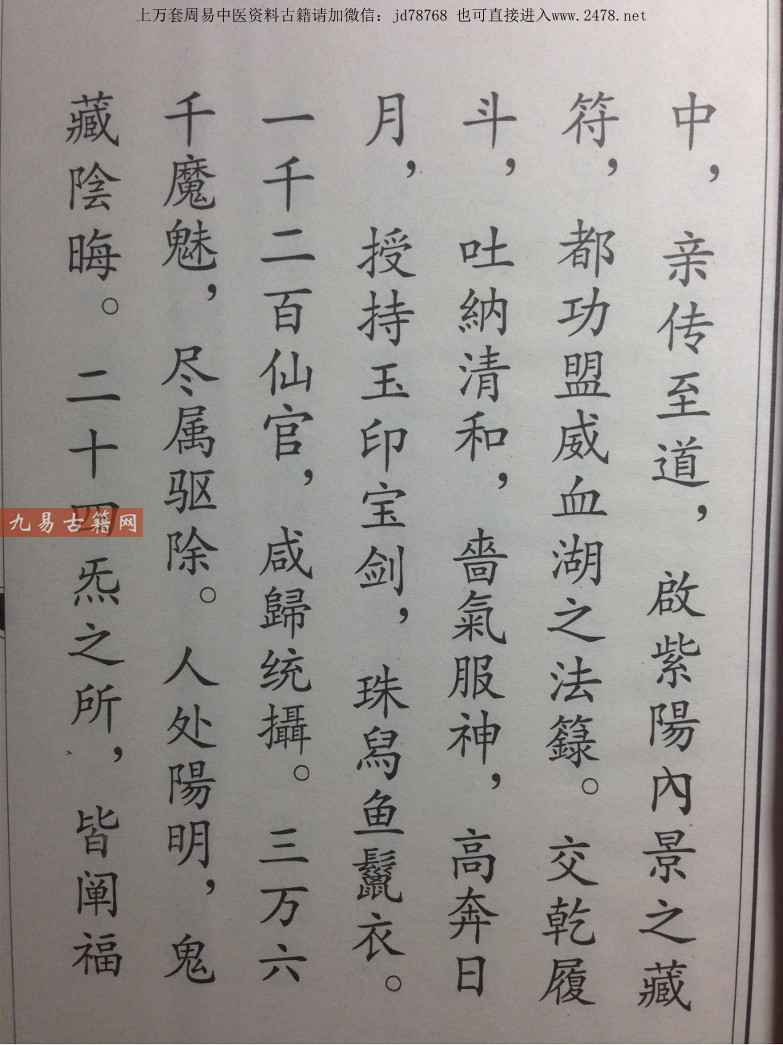 上万套周易中医资料古籍请加微信：jd78768 也可直接进入www.2478.net
中，亲传至道，啟紫陽內景之藏
符，都功盟威血湖之法籙。交乾履
斗，吐納清和，嗇氣服神，高奔日
月，授持玉印宝剑，珠舄鱼鬣衣。
一千二百仙官，咸歸统攝。三万六
千魔魅，尽属驱除。人处陽明，鬼
藏陰晦。二十四炁之所，皆阐福
九易古籍网